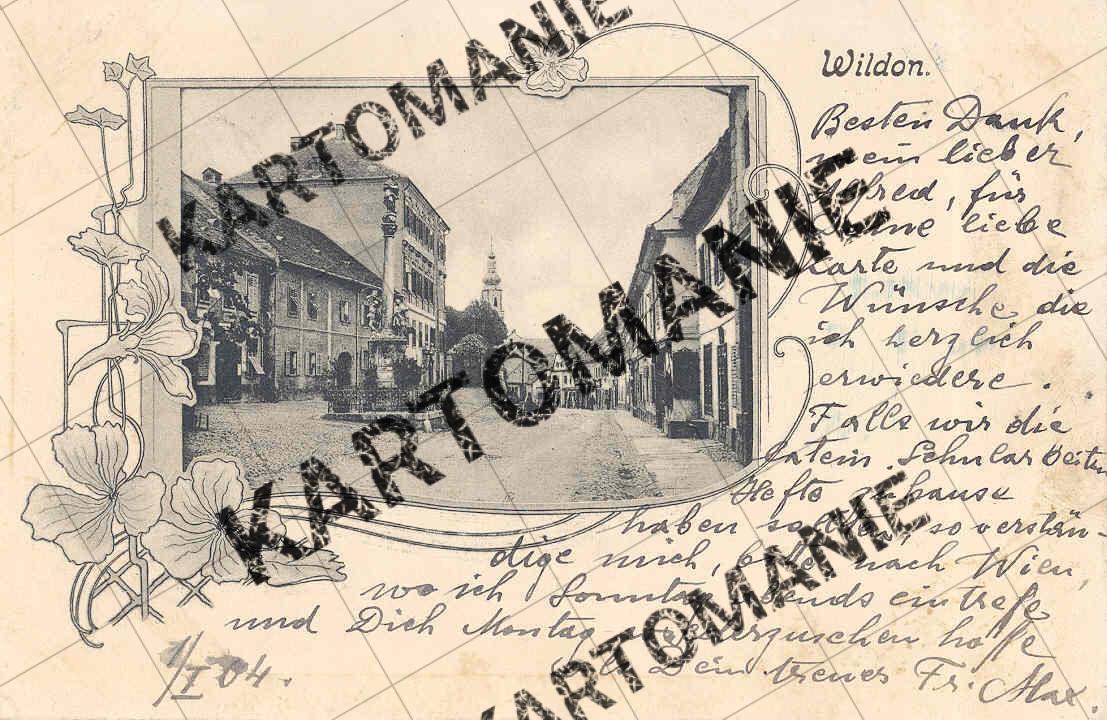 Wildon.
Besten Dank,
mein lieber
Alfred, für
Deine liebe
Karte und die
Wünsche, die
ich herzlich
erwiedere.
Falls wir die
latein. Schularbeiten
Hefte zuhause
haben sollten, so verstän-
dige mich, bitte nach Wien,
wo ich Sonntag abends eintreffe
und Dich Montag wiederzusehen hoffe
Dein treuer Fr. Max.
1/I 04.
KARTOMANIE
KARTOMANIE
KARTOMANIE